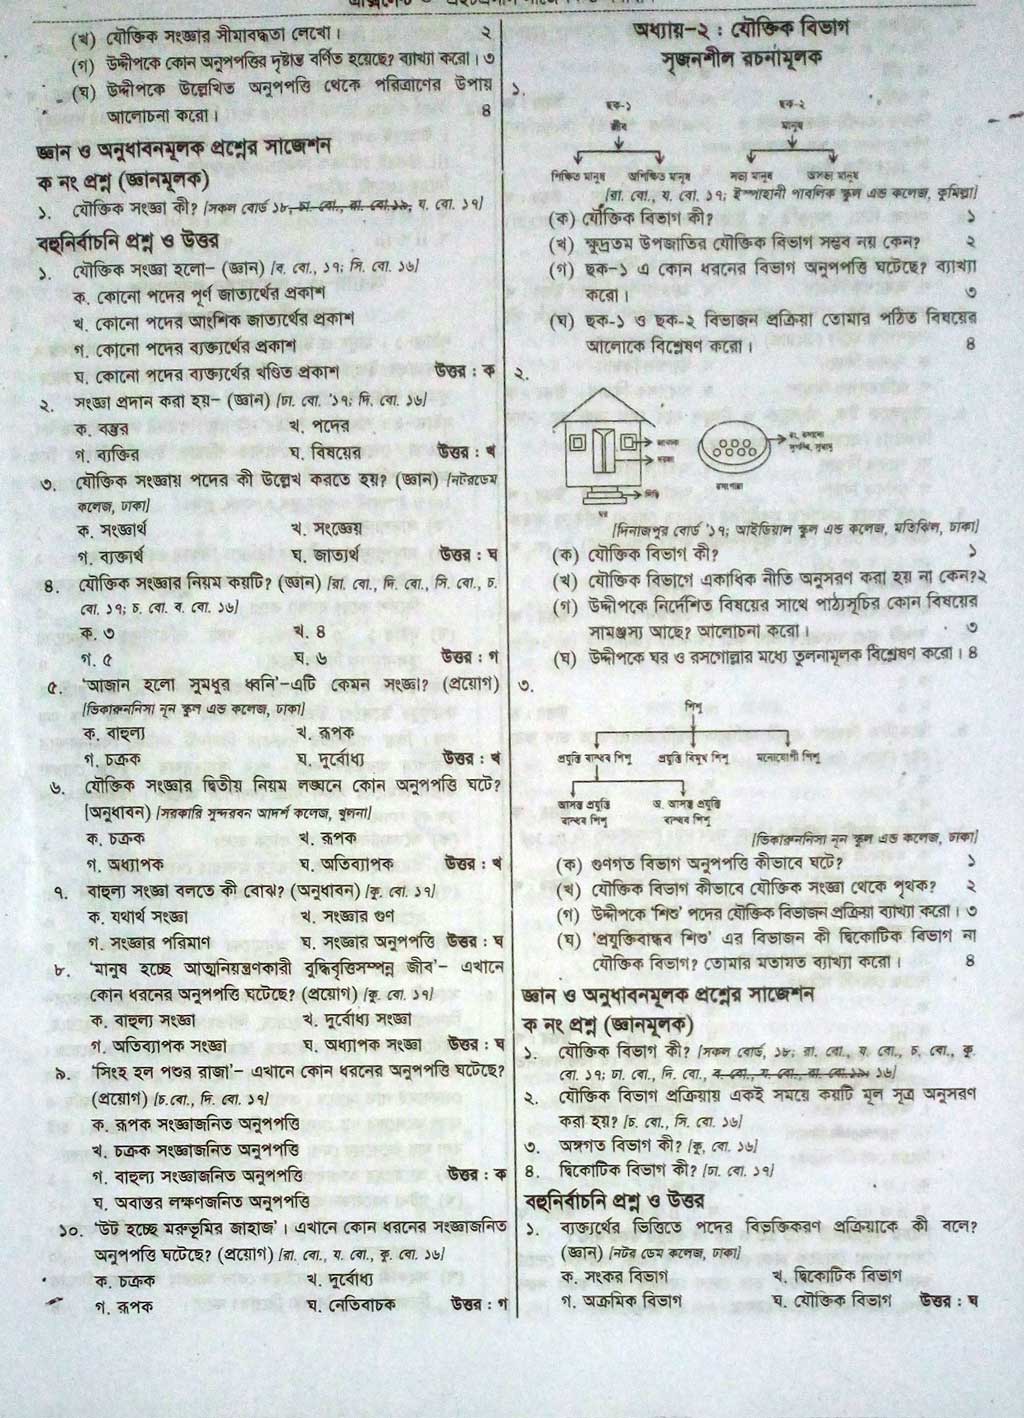 (খ) যৌক্তিক সংজ্ঞার সীমাবদ্ধতা লেখো। ২
(গ) উদ্দীপকে কোন অনুপপত্তির দৃষ্টান্ত বর্ণিত হয়েছে? ব্যাখ্যা করো। ৩
(ঘ) উদ্দীপকে উল্লেখিত অনুপপত্তি থেকে পরিত্রাণের উপায়
আলোচনা করো। ৪
জ্ঞান ও অনুধাবনমূলক প্রশ্নের সাজেশন
ক নং প্রশ্ন (জ্ঞানমূলক)
১. যৌক্তিক সংজ্ঞা কী? [সকল বোর্ড ১৮, ঢা. বো., রা. বো.১৯, য. বো. ১৭]
বহুনির্বাচনি প্রশ্ন ও উত্তর
১. যৌক্তিক সংজ্ঞা হলো– (জ্ঞান) [ব. বো., ১৭; সি. বো. ১৬]
ক. কোনো পদের পূর্ণ জাত্যর্থের প্রকাশ
খ. কোনো পদের আংশিক জাত্যর্থের প্রকাশ
গ. কোনো পদের ব্যক্ত্যর্থের প্রকাশ
ঘ. কোনো পদের ব্যক্ত্যর্থের খণ্ডিত প্রকাশ উত্তর : ক
২. সংজ্ঞা প্রদান করা হয়– (জ্ঞান) [ঢা. বো. '১৭; দি. বো. ১৬]
ক. বস্তুর খ. পদের
গ. ব্যক্তির ঘ. বিষয়ের উত্তর : খ
৩. যৌক্তিক সংজ্ঞায় পদের কী উল্লেখ করতে হয়? (জ্ঞান) [নটরডেম
কলেজ, ঢাকা]
ক. সংজ্ঞার্থ খ. সংজ্ঞেয়
গ. ব্যক্ত্যর্থ ঘ. জাত্যর্থ উত্তর : ঘ
৪. যৌক্তিক সংজ্ঞার নিয়ম কয়টি? (জ্ঞান) [রা. বো., দি. বো., সি. বো., চ.
বো. ১৭; চ. বো. ব. বো. ১৬]
ক. ৩ খ. ৪
গ. ৫ ঘ. ৬ উত্তর : গ
৫. 'আজান হলো সুমধুর ধ্বনি'–এটি কেমন সংজ্ঞা? (প্রয়োগ)
[ভিকারুননিসা নূন স্কুল এন্ড কলেজ, ঢাকা]
ক. বাহুল্য খ. রূপক
গ. চক্রক ঘ. দুর্বোধ্য উত্তর : খ
৬. যৌক্তিক সংজ্ঞার দ্বিতীয় নিয়ম লঙ্ঘনে কোন অনুপপত্তি ঘটে?
(অনুধাবন) [সরকারি সুন্দরবন আদর্শ কলেজ, খুলনা]
ক. চক্রক খ. রূপক
গ. অব্যাপক ঘ. অতিব্যাপক উত্তর : খ
৭. বাহুল্য সংজ্ঞা বলতে কী বোঝ? (অনুধাবন) [কু. বো. ১৭]
ক. যথার্থ সংজ্ঞা খ. সংজ্ঞার গুণ
গ. সংজ্ঞার পরিমাণ ঘ. সংজ্ঞার অনুপপত্তি উত্তর : ঘ
৮. 'মানুষ হচ্ছে আত্মনিয়ন্ত্রণকারী বুদ্ধিবৃত্তিসম্পন্ন জীব'– এখানে
কোন ধরনের অনুপপত্তি ঘটেছে? (প্রয়োগ) [কু. বো. ১৭]
ক. বাহুল্য সংজ্ঞা খ. দুর্বোধ্য সংজ্ঞা
গ. অতিব্যাপক সংজ্ঞা ঘ. অব্যাপক সংজ্ঞা উত্তর : ঘ
৯. 'সিংহ হল পশুর রাজা'– এখানে কোন ধরনের অনুপপত্তি ঘটেছে?
(প্রয়োগ) [চ.বো., দি. বো. ১৭]
ক. রূপক সংজ্ঞাজনিত অনুপপত্তি
খ. চক্রক সংজ্ঞাজনিত অনুপপত্তি
গ. বাহুল্য সংজ্ঞাজনিত অনুপপত্তি উত্তর : ক
ঘ. অবান্তর লক্ষণজনিত অনুপপত্তি
১০. 'উট হচ্ছে মরুভূমির জাহাজ'। এখানে কোন ধরনের সংজ্ঞাজনিত
অনুপপত্তি ঘটেছে? (প্রয়োগ) [রা. বো., য. বো., কু. বো. ১৬]
ক. চক্রক খ. দুর্বোধ্য
গ. রূপক ঘ. নেতিবাচক উত্তর : গ
অধ্যায়–২ : যৌক্তিক বিভাগ
সৃজনশীল রচনামূলক
১.
ছক–১ ছক–২
জীব মানুষ
শিক্ষিত মানুষ অশিক্ষিত মানুষ সভ্য মানুষ অসভ্য মানুষ
[রা. বো., য. বো. ১৭; ইস্পাহানী পাবলিক স্কুল এন্ড কলেজ, কুমিল্লা]
(ক) যৌক্তিক বিভাগ কী? ১
(খ) ক্ষুদ্রতম উপজাতির যৌক্তিক বিভাগ সম্ভব নয় কেন? ২
(গ) ছক–১ এ কোন ধরনের বিভাগ অনুপপত্তি ঘটেছে? ব্যাখ্যা
করো। ৩
(ঘ) ছক–১ ও ছক–২ বিভাজন প্রক্রিয়া তোমার পঠিত বিষয়ের
আলোকে বিশ্লেষণ করো। ৪
২.
জানালা
দরজা
সিঁড়ি
ঘর
রসগোল্লা
[দিনাজপুর বোর্ড '১৭; আইডিয়াল স্কুল এন্ড কলেজ, মতিঝিল, ঢাকা]
(ক) যৌক্তিক বিভাগ কী? ১
(খ) যৌক্তিক বিভাগে একাধিক নীতি অনুসরণ করা হয় না কেন?২
(গ) উদ্দীপকে নির্দেশিত বিষয়ের সাথে পাঠ্যসূচির কোন বিষয়ের
সামঞ্জস্য আছে? আলোচনা করো। ৩
(ঘ) উদ্দীপকে ঘর ও রসগোল্লার মধ্যে তুলনামূলক বিশ্লেষণ করো। ৪
৩.
শিশু
প্রযুক্তি বান্ধব শিশু প্রযুক্তি বিমুখ শিশু মনোযোগী শিশু
আসক্ত প্রযুক্তি অ. আসক্ত প্রযুক্তি
বান্ধব শিশু বান্ধব শিশু
[ভিকারুননিসা নূন স্কুল এন্ড কলেজ, ঢাকা]
(ক) গুণগত বিভাগ অনুপপত্তি কীভাবে ঘটে? ১
(খ) যৌক্তিক বিভাগ কীভাবে যৌক্তিক সংজ্ঞা থেকে পৃথক? ২
(গ) উদ্দীপকে 'শিশু' পদের যৌক্তিক বিভাজন প্রক্রিয়া ব্যাখ্যা করো। ৩
(ঘ) 'প্রযুক্তিবান্ধব শিশু' এর বিভাজন কী দ্বিকোটিক বিভাগ না
যৌক্তিক বিভাগ? তোমার মতামত ব্যাখ্যা করো। ৪
জ্ঞান ও অনুধাবনমূলক প্রশ্নের সাজেশন
ক নং প্রশ্ন (জ্ঞানমূলক)
১. যৌক্তিক বিভাগ কী? [সকল বোর্ড, ১৮; রা. বো., য. বো., চ. বো., কু.
বো. ১৭; ঢা. বো., দি. বো., ব. বো., য. বো., রা. বো.১৯ ১৬]
২. যৌক্তিক বিভাগ প্রক্রিয়ায় একই সময়ে কয়টি মূল সূত্র অনুসরণ
করা হয়? [চ. বো., সি. বো. ১৬]
৩. অঙ্গগত বিভাগ কী? [কু, বো. ১৬]
৪. দ্বিকোটিক বিভাগ কী? [ঢা. বো. ১৭]
বহুনির্বাচনি প্রশ্ন ও উত্তর
১. ব্যক্ত্যর্থের ভিত্তিতে পদের বিভক্তিকরণ প্রক্রিয়াকে কী বলে?
(জ্ঞান) [নটর ডেম কলেজ, ঢাকা]
ক. সংকর বিভাগ খ. দ্বিকোটিক বিভাগ
গ. অক্রমিক বিভাগ ঘ. যৌক্তিক বিভাগ উত্তর : ঘ